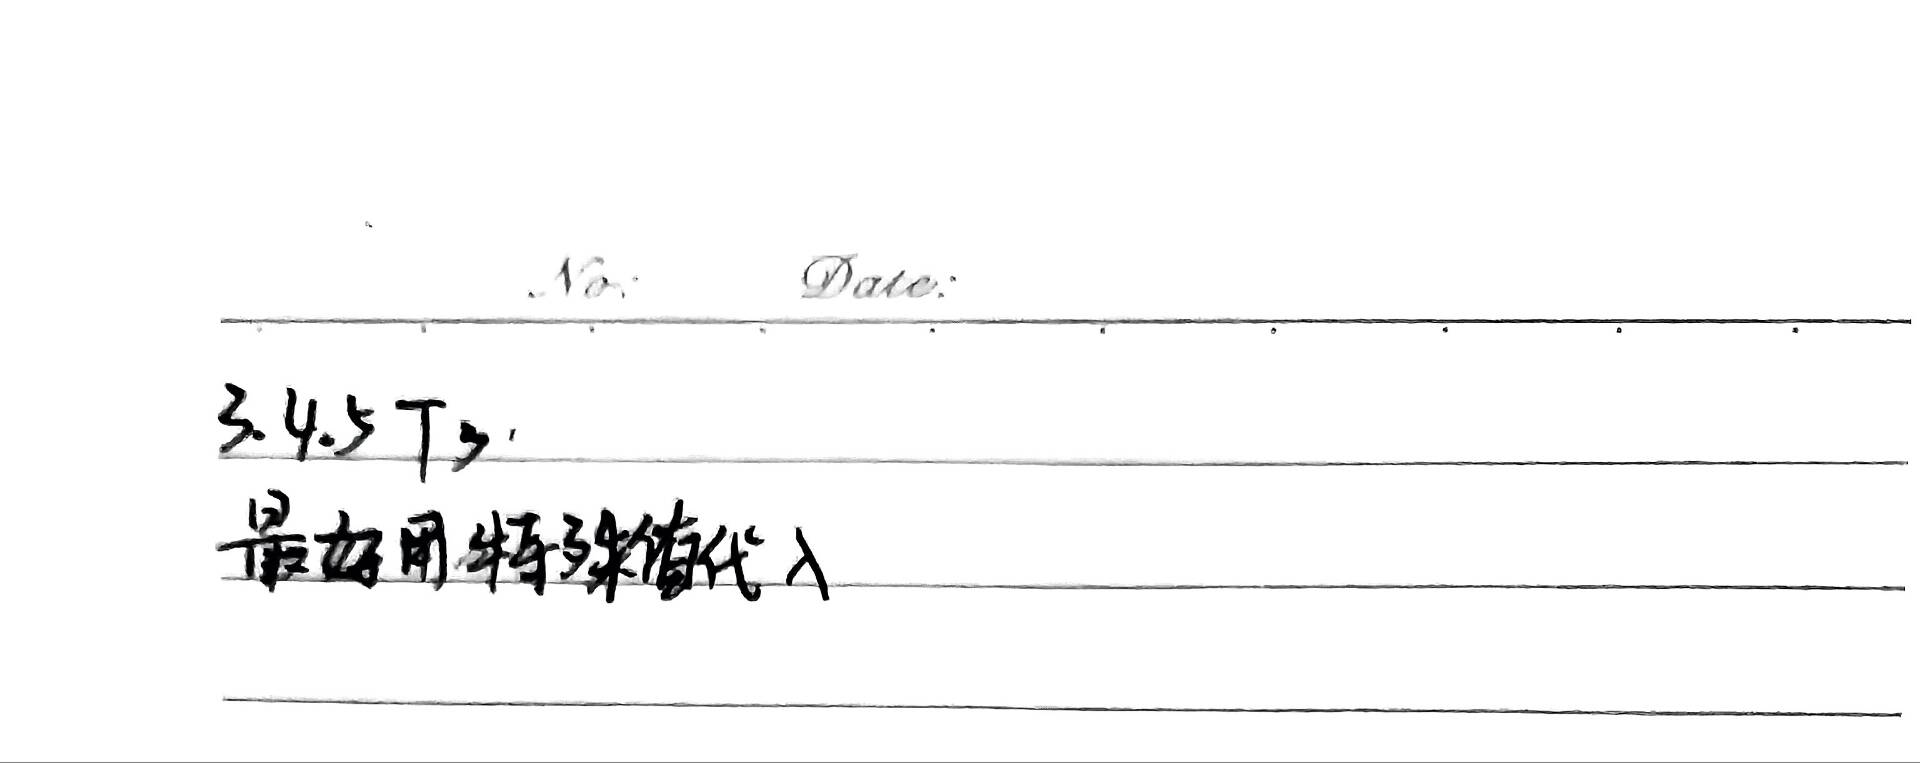 No: Date:
3.4.5 T3.
最好用特殊值代入